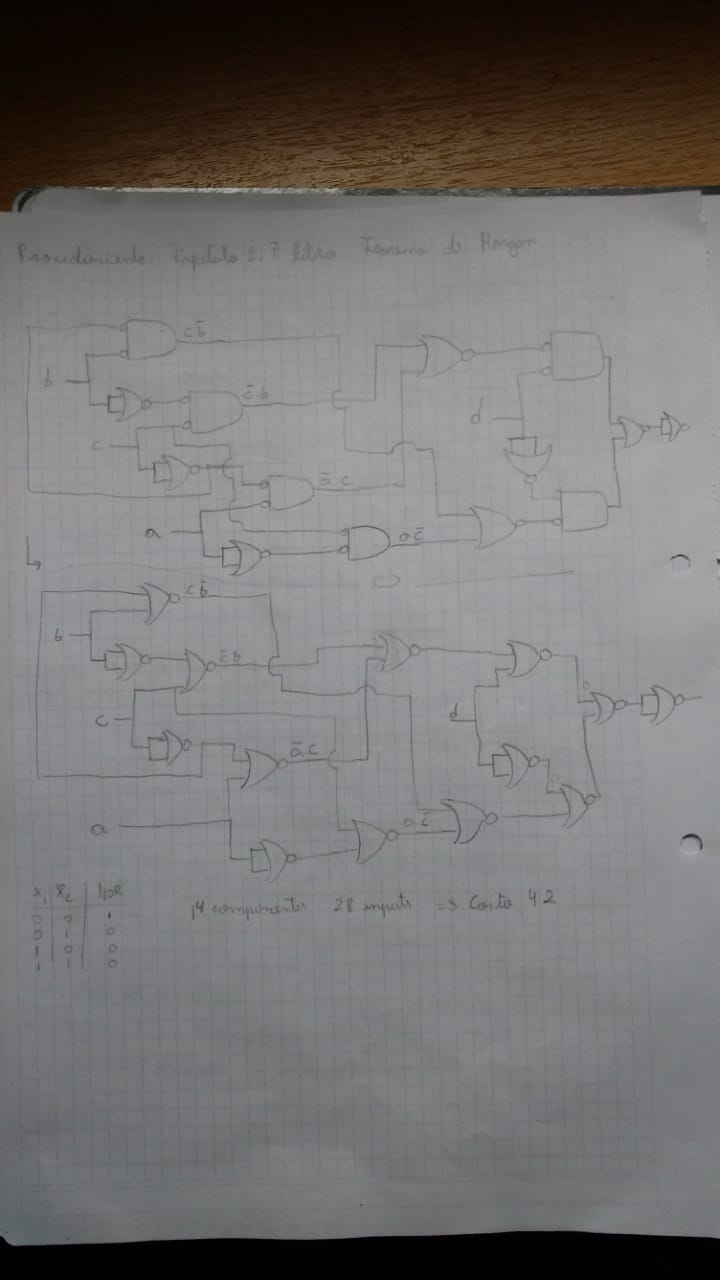 Procedimiento Capitulo 2.7 libro Teorema de Morgan
c b̄
b
c̄ b
c
d
ā c
a
a c̄
c b̄
b
c̄ b
c
d
ā c
a
a c̄
x₁ x₂ NOR
0 0 1
0 1 0
1 0 0
1 1 0
14 componentes 28 inputs => Costo 42